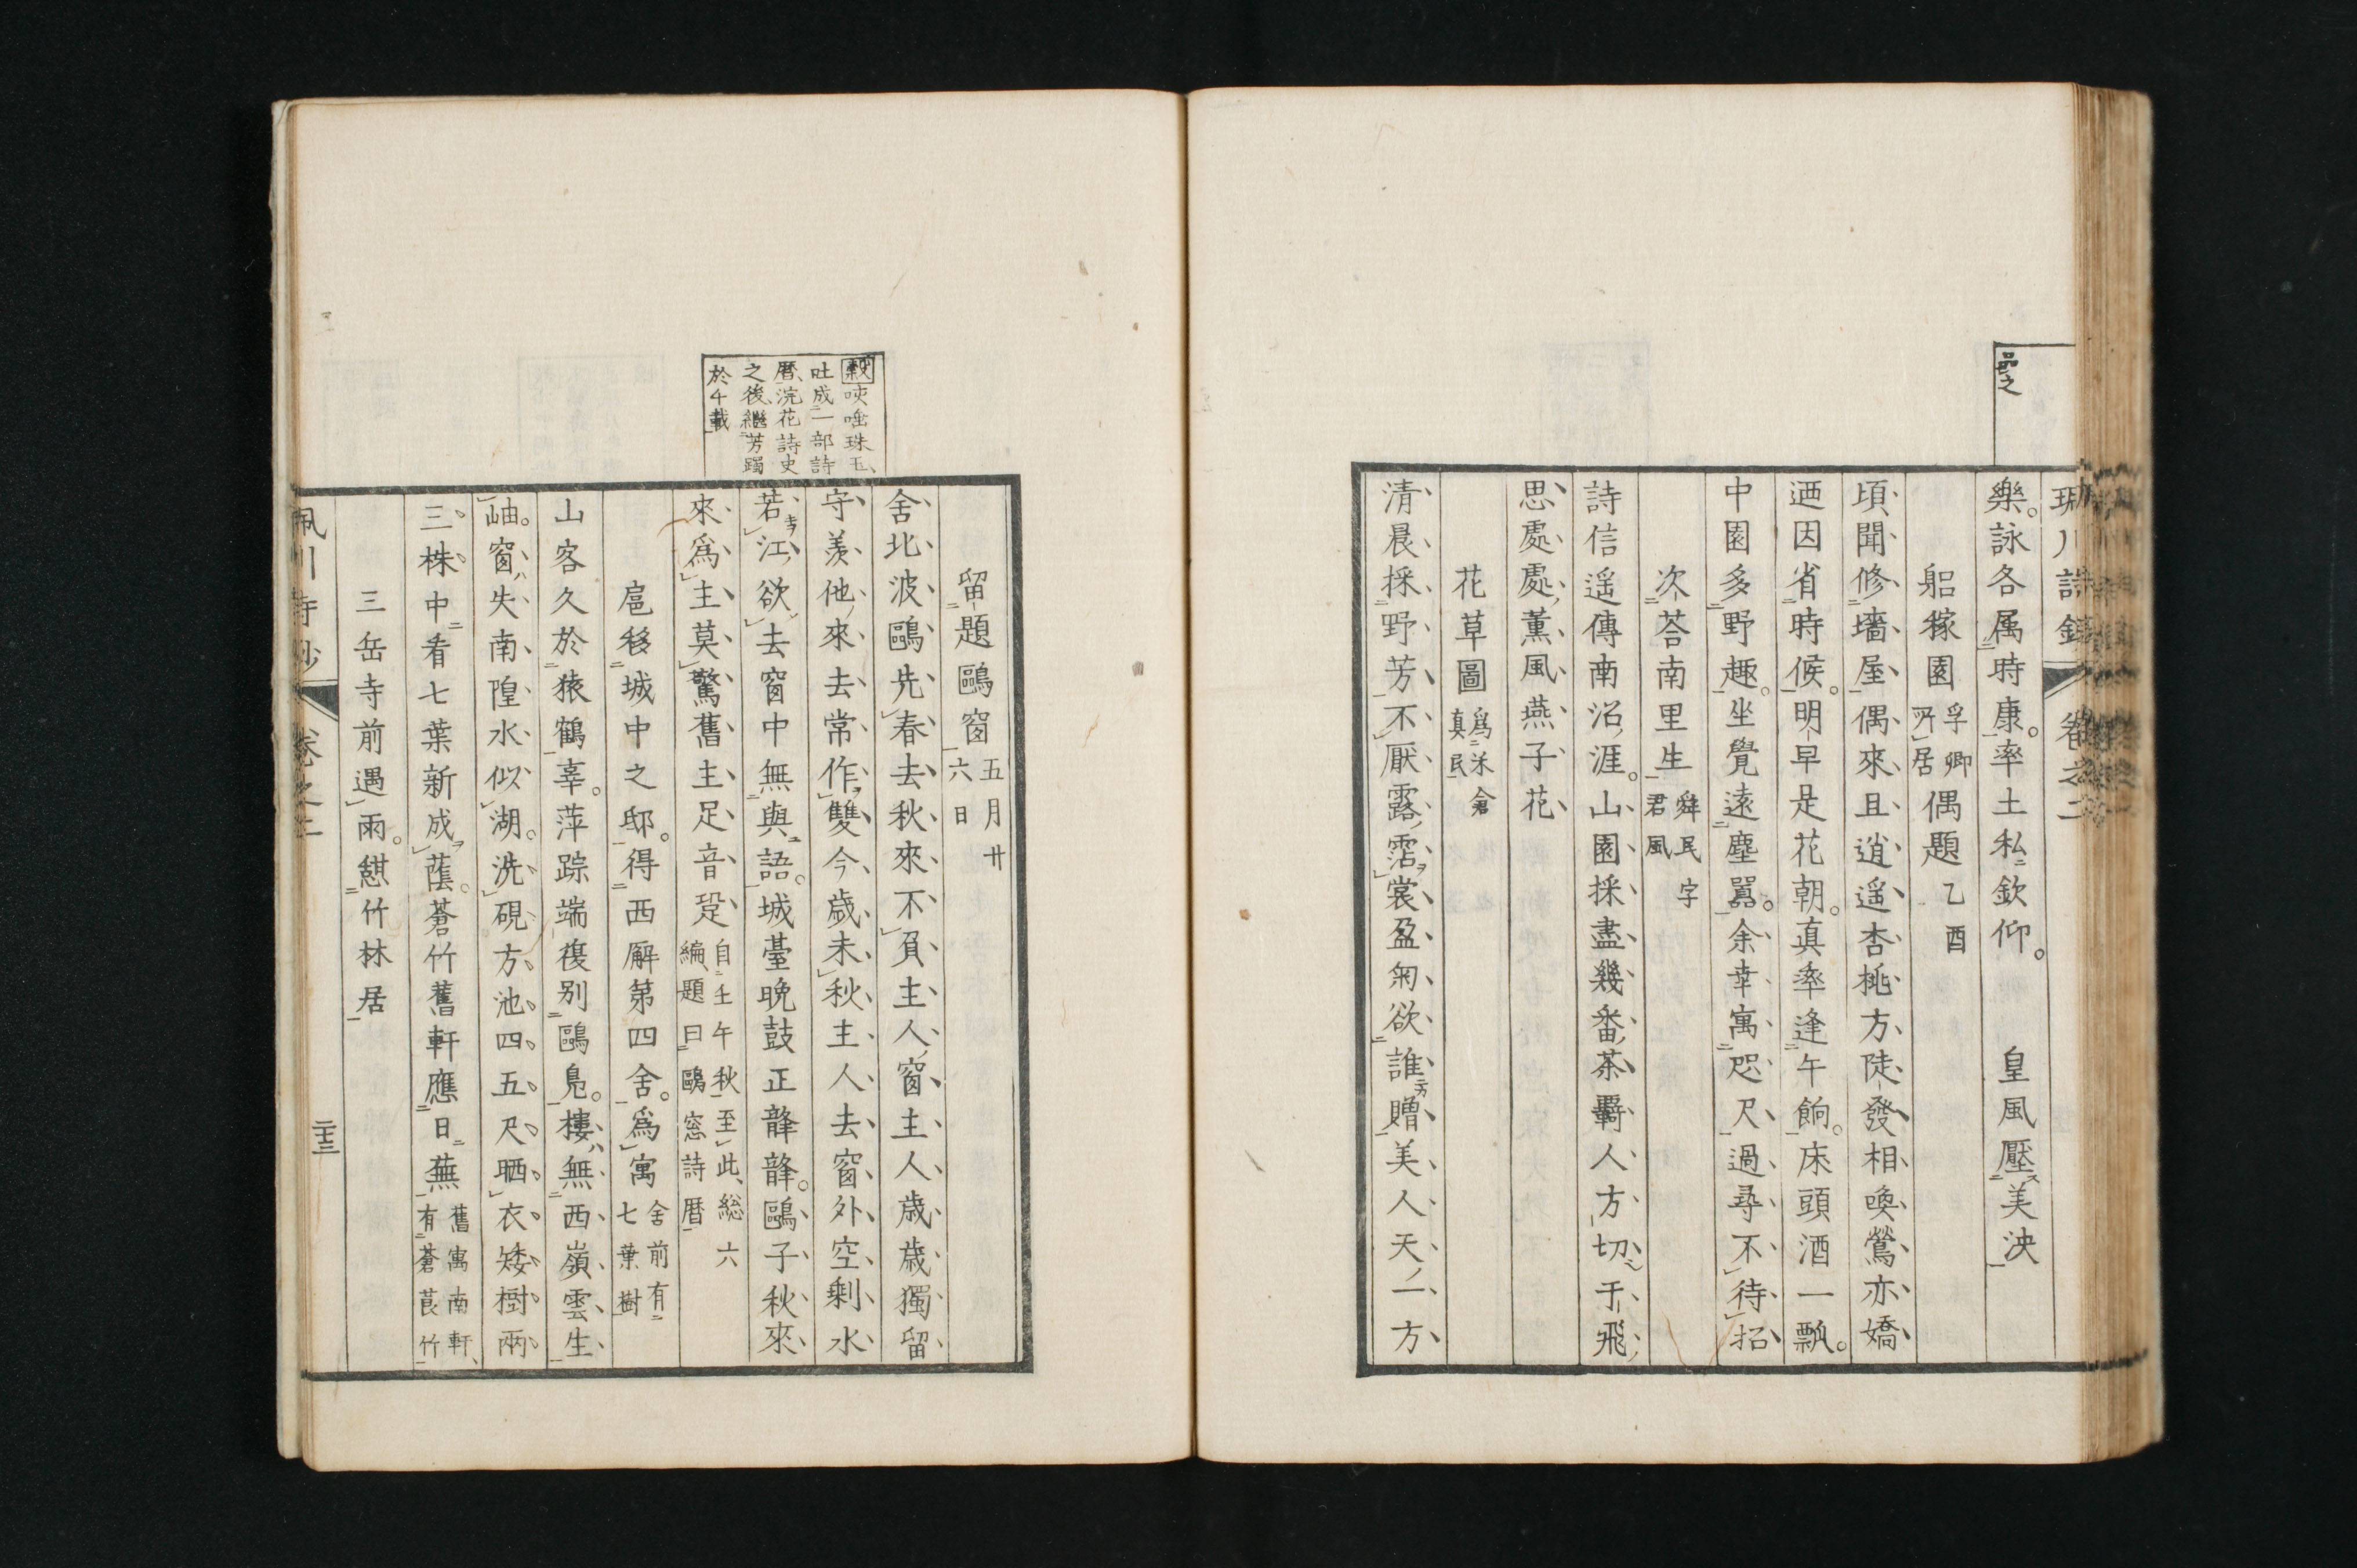 樂詠各属時康率土私欽仰　皇風壓美泱
躳稼園孚卿所居偶題乙酉
頃聞修墻屋偶來且逍遥杏桃方陡發相喚鶯亦嬌
迺因省時候明早是花朝真率逢午餉床頭酒一瓢
中園多野趣坐覺遠塵囂余幸寓咫尺過尋不待招
次荅南里生舜民字君風
詩信遥傳南沼涯山園採盡幾番茶羇人方切于飛
思處處薰風燕子花
花草圖爲米倉真民
清晨採野芳不厭露霑裳盈匊欲誰贈美人天一方
留題鷗窗五月廿六日
舍北波鷗先春去秋來不負主人窗主人歳歳獨留
守羨他來去常作雙今歳未秋主人去窗外空剩水
若江欲去窗中無與語城臺晩鼓正韸韸鷗子秋來
來爲主莫驚舊主足音跫自壬午秋至此総六編題曰鷗窓詩暦
扈移城中之邸得西廨第四舍爲寓舍前有七葉樹
山客久於猿鶴辜萍踪端復别鷗鳬樓無西嶺雲生
岫窗失南隍水似湖洗硯方池四五尺晒衣矮樹兩
三株中看七葉新成蔭蒼竹舊軒應日蕪舊寓南軒有蒼莨竹
三岳寺前遇雨憇竹林居
吐成一部詩
暦浣花詩史
之後繼芳躅
於千載
卷之二